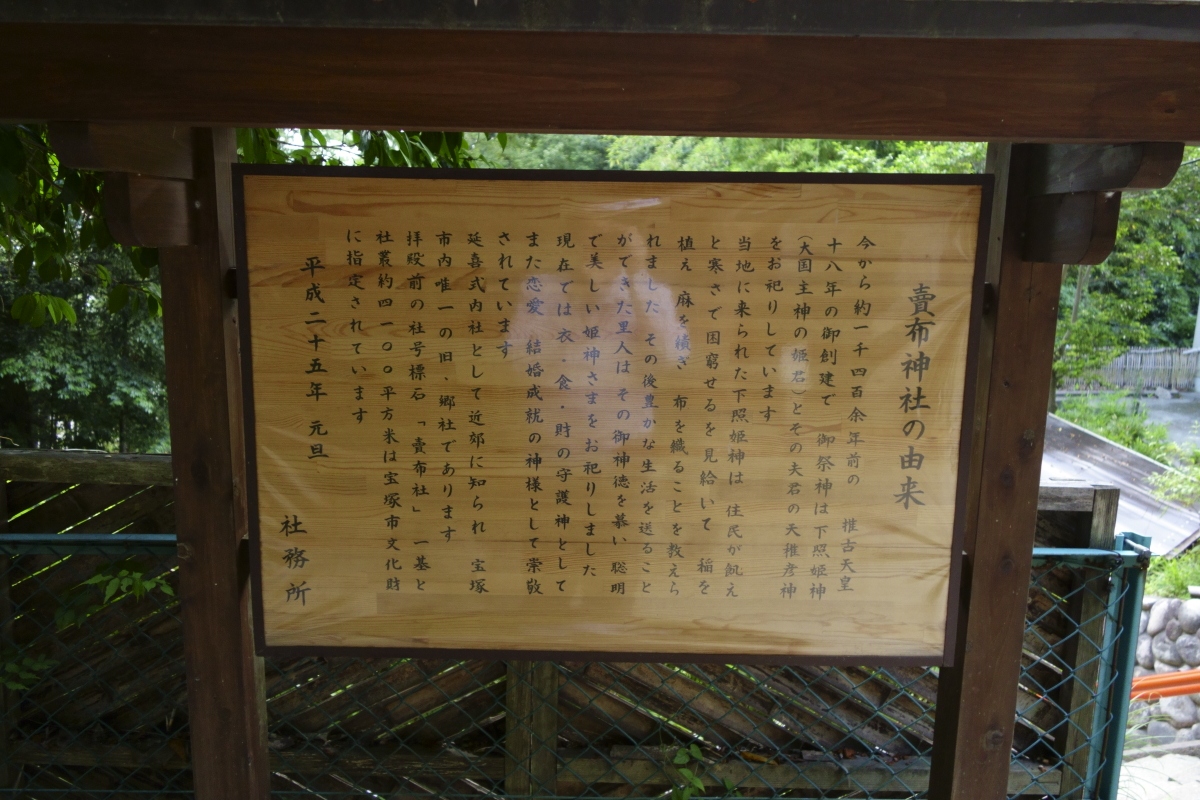 賣布神社の由来
今から約一千四百余年前の 推古天皇
十八年の御創建で 御祭神は下照姫神
(大国主神の姫君)とその夫君の天稚彦神
をお祀りしています
当地に来られた下照姫神は 住民が飢え
と寒さで困窮せるを見給いて 稲を
植え 麻を績ぎ 布を織ることを教えら
れました その後豊かな生活を送ること
ができた里人は その御神徳を慕い 聡明
で美しい姫神さまをお祀りしました
現在では衣・食・財の守護神として
また恋愛 結婚成就の神様として崇敬
されています
延喜式内社として近郊に知られ 宝塚
市内唯一の旧・郷社であります
拝殿前の社号標石「賣布社」一基と
社叢約四一〇〇平方米は宝塚市文化財
に指定されています
平成二十五年 元旦
社務所